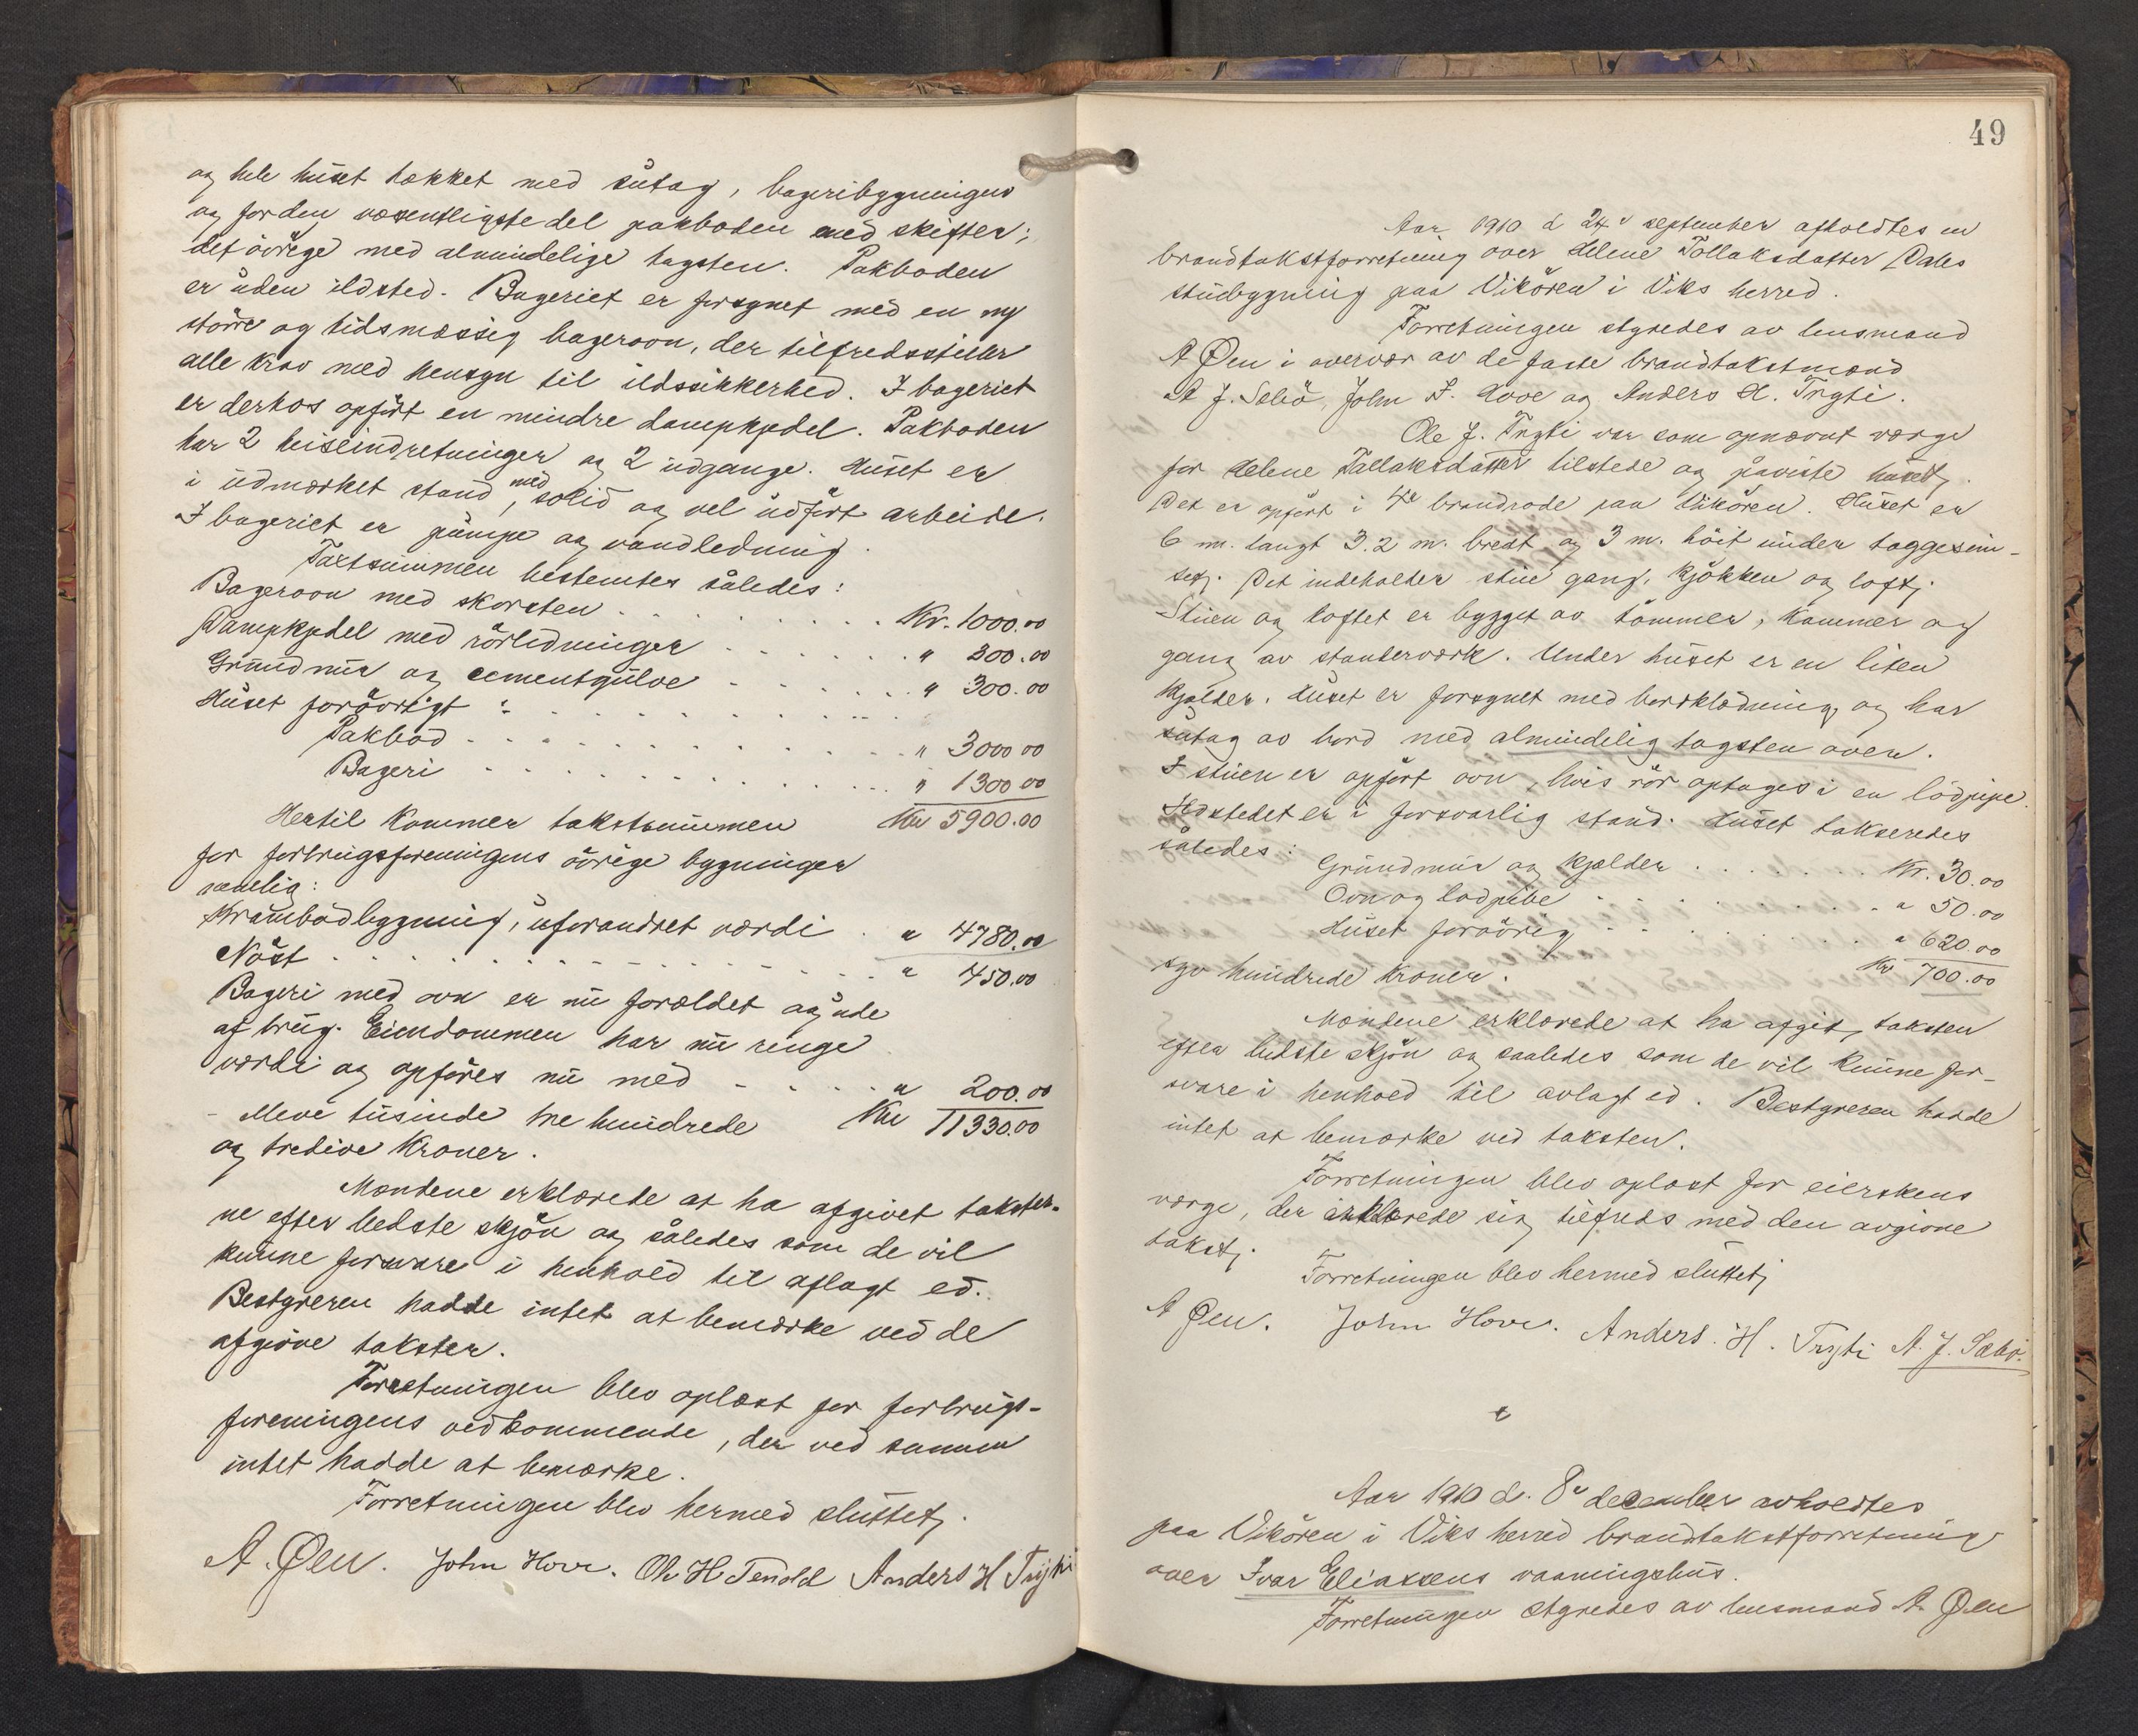 og hele huset tækket med sutag, bageribygningen
og for den væsentligste del pakboden med skifter;
det övrige med almindelige tagsten. Pakboden
er uden ildsted. Bageriet er forsynet med en ny
större og tidsmæssig bagerovn, der tilfredsstiller
alle krav med hensyn til ildssikkerhed. I bageriet
er derhos opfört en mindre dampkjedel. Pakboden
har 2 heiseindretninger og 2 udgange. Huset er
i udmærket stand, med solid og vel udfört arbeide.
I bageriet er pumpe og vandledning.
Taxtsummen bestemtes således:
Bagerovn med skorsten . . . . . . . Kr. 1000.00
Dampkjedel med rörledninger . . . . . " 300.00
Grundmur og cementgulve . . . . . . " 300.00
Huset forövrigt : . . . . . . .
Pakbod . . . . . . . . . . " 3000 00
Bageri . . . . . . . . . . " 1300 00
Hertil kommer takstsummen Kr 5900.00
for forbrugsforeningens övrige bygninger
nemlig:
Krambodbygning, uforandret værdi . " 4780.00
Nöst . . . . . . . . . . " 450.00
Bageri med ovn er nu forældet og ude
af brug. Eiendommen har nu ringe
værdi og opföres nu med . . . . " 200.00
- Elleve tusinde tre hundrede Kr 11330.00
og tredive Kroner.
Mændene erklærede at ha afgivet takster-
ne efter bedste skjön og således som de vil
kunne forsvare i henhold til aflagt ed.
Bestyreren hadde intet at bemærke ved de
afgivne takster.
Forretningen blev oplæst for forbrugs-
foreningens vedkommende, der ved samme
intet hadde at bemærke.
Forretningen blev hermed sluttet.
A. Øen. John Hove. Ole H Tenold Anders H Tryti
49
Aar 1910 d 24de september afholdtes en
brandtakstforretning over Helene Tollaksdatter Dales
stuebygning paa Vikören i Viks herred.
Forretningen styredes av lensmand
A Øen i overvær av de faste brandtakstmænd
A J. Sæbö, John I. Hove og Anders H. Tryti.
Ole J. Tryti var som opnævnt værge
for Helene Tallaksdatter tilstede og påviste huset.
Det er opfört i 4de brandrode paa Vikören. Huset er
6 m. langt 3.2 m. bredt og 3 m. höit under taggesim-
sen. Det indeholder stue gang, kjökken og loft.
Stuen og loftet er bygget av tömmer, kammer og
gang av standerværk. Under huset er en liten
kjælder. Huset er forsynet med bordklædning og har
sutag av bord med almindelig tagsten over.
I stuen er opfört ovn, hvis rör optages i en lödpipe.
Ildstedet er i forsvarlig stand. Huset takseredes
således:
Grundmur og kjælder . . . . . . Kr. 30.00
Ovn og lodpibe . . . . . . . " 50.00
Huset forövrig . . . . . . . " 620.00
syv hundrede Kroner. Kr 700.00
Mændene erklærede at ha afgit taksten
efter bedste skjön og saaledes som de vil kunne for-
svare i henhold til avlagt ed. Bestyreren hadde
intet at bemærke ved taksten.
Forretningen blev oplæst for eierskens
værge, der erklærede sig tilfreds med den avgivne
takst.
Forretningen blev hermed sluttet.
A Øen. John Hove. Anders. H. Tryti A. J. Sæbö.
Aar 1910 d. 8de december avholdtes
paa Vikören i Viks herred brandtakstforretning
over Ivar Eliassens vaaningshus.
Forretningen styredes av lensmand A. Øen